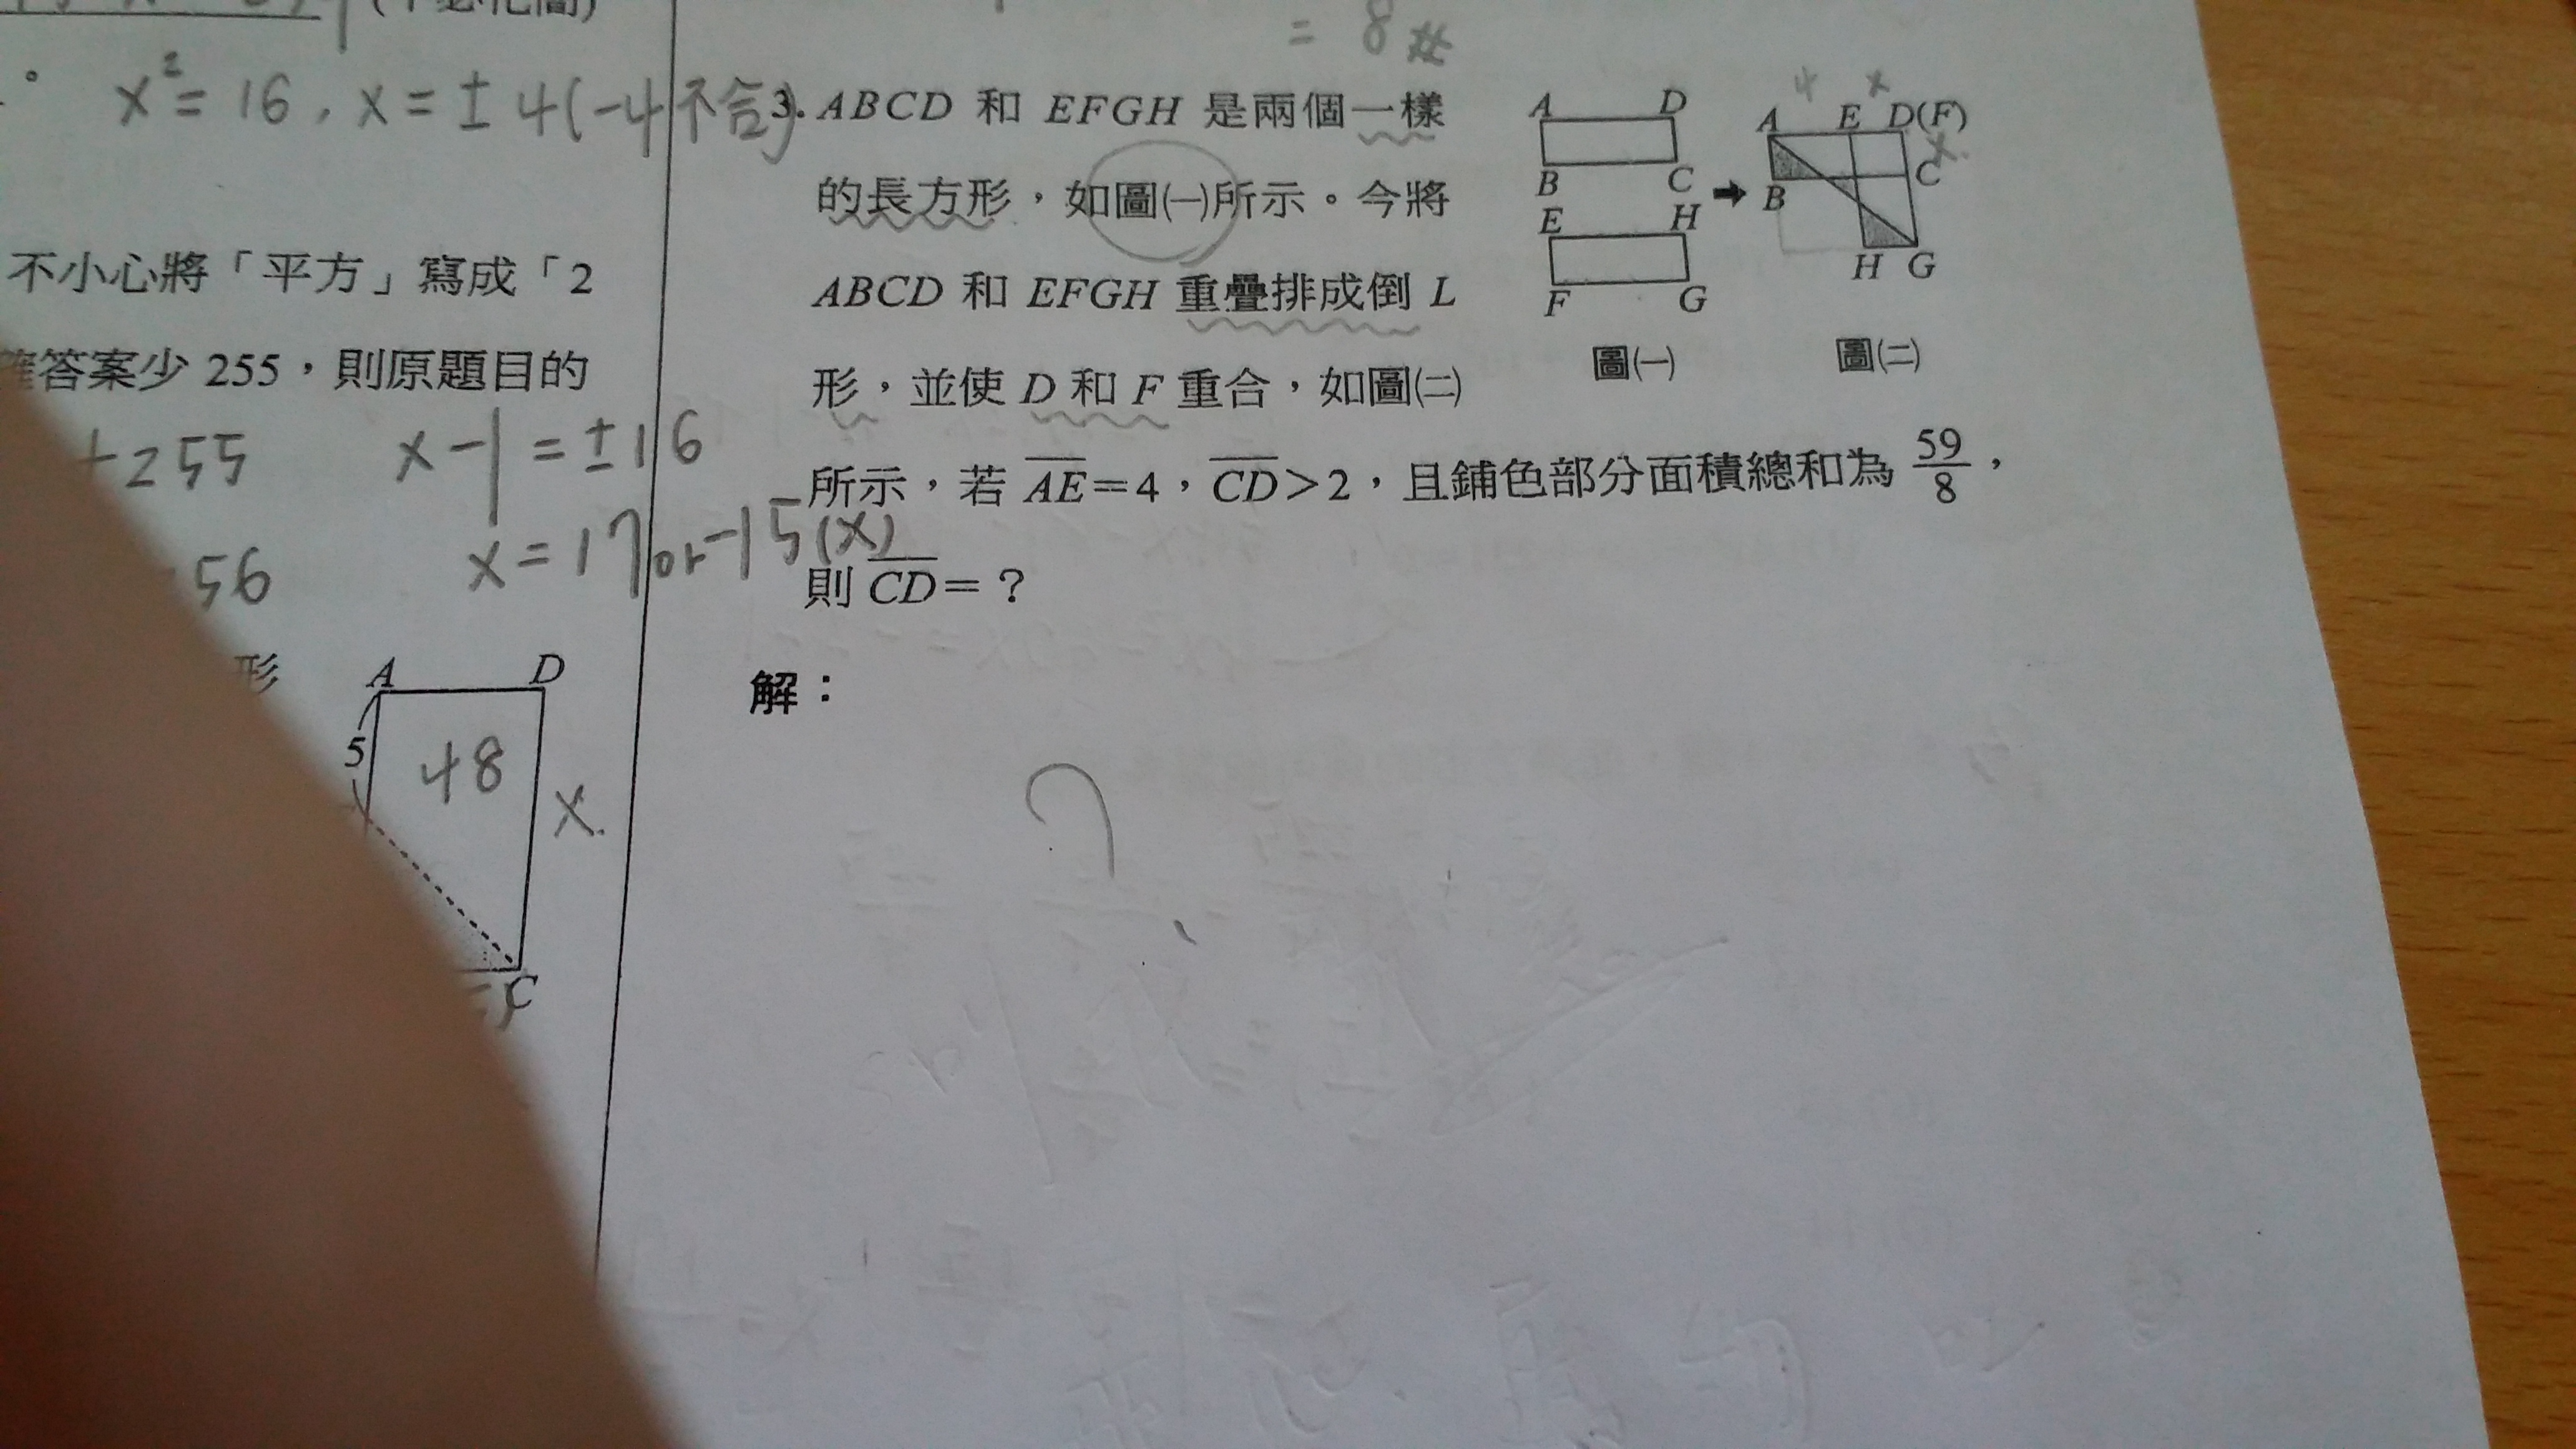 (不必化簡)
x² = 16 , x = ± 4 (-4 不合)
不小心將「平方」寫成「2
答案少 255,則原題目的
+255 x-1 = ±16
56 x = 17 or -15 (x)
形
A D
5 48 x.
C
= 8 #
3. ABCD 和 EFGH 是兩個一樣
的長方形,如圖㈠所示。今將
ABCD 和 EFGH 重疊排成倒 L
形,並使 D 和 F 重合,如圖㈡
所示,若 AE=4,CD>2,且鋪色部分面積總和為 59/8,
則 CD=?
解:
?
A D
B C
E H
F G
圖㈠
➡
4 x
A E D(F)
x.
B C
H G
圖㈡